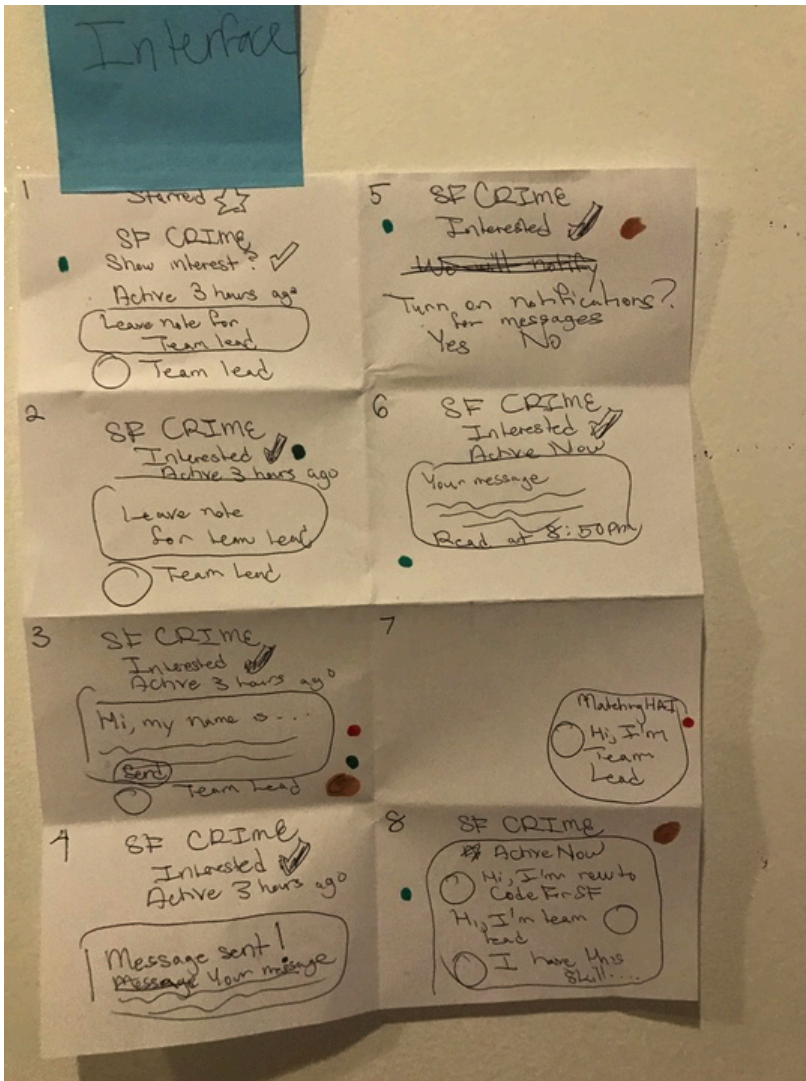 Interface
1
Starred
SF CRIME
Show interest?
Active 3 hours ago
Leave note for
Team lead
Team lead
2
SF CRIME
Interested
Active 3 hours ago
Leave note
for team lead
Team Lead
3
SF CRIME
Interested
Active 3 hours ago
Hi, my name is ....
Send
Team Lead
4
SF CRIME
Interested
Active 3 hours ago
Message sent!
Message Your message
5
SF CRIME
Interested
We will notify
Turn on notifications?
for messages
Yes No
6
SF CRIME
Interested
Active Now
Your message
Read at 8:50pm
7
Hi, I'm
Team
Lead
8
SF CRIME
Active Now
Hi, I'm new to
Code For SF
Hi, I'm team
lead
I have this
skill....